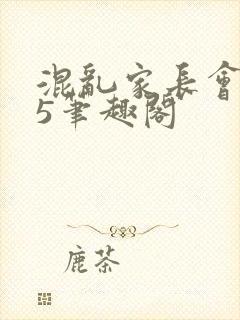 混亂家長會
5筆趣閣
鹿茶